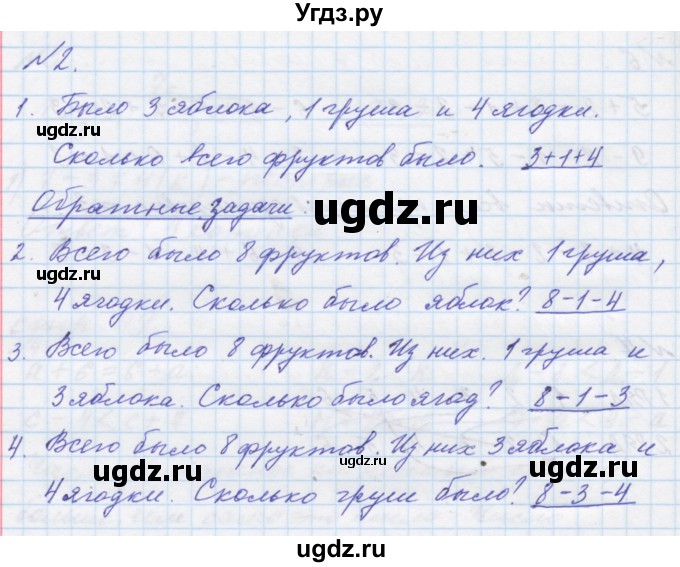 Угдз.ру
№2.
1. Было 3 яблока, 1 груша и 4 ягодки.
ugdz.ru
Сколько всего фруктов было. 3+1+4
ugdz.ru
Обратные задачи:
ugdz.ru
2. Всего было 8 фруктов. Из них 1 груша,
ugdz.ru
4 ягодки. Сколько было яблок? 8-1-4
ugdz.ru
3. Всего было 8 фруктов. Из них. 1 груша и
3 яблока. Сколько было ягод? 8-1-3
ugdz.ru
4. Всего было 8 фруктов. Из них 3 яблока и
ugdz.ru
ugdz.ru
ugdz.ru
4 ягодки. Сколько груш было? 8-3-4
ugdz.ru
ugdz.ru